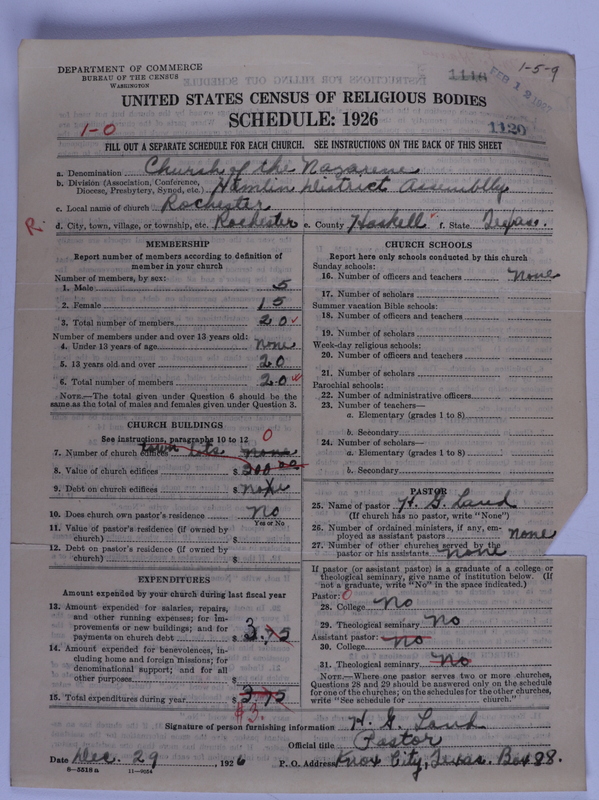 DEPARTMENT OF COMMERCE
BUREAU OF THE CENSUS
WASHINGTON
1116
FEB 12 1927
1-5-9
UNITED STATES CENSUS OF RELIGIOUS BODIES
SCHEDULE: 1926
1-0
1120
FILL OUT A SEPARATE SCHEDULE FOR EACH CHURCH. SEE INSTRUCTIONS ON THE BACK OF THIS SHEET
a. Denomination Church of the Nazarene
b. Division (Association, Conference, Diocese, Presbytery, Synod, etc.) Hamlin District Assemblly
c. Local name of church Rochester
R.
d. City, town, village, or township, etc. Rochester e. County Haskell f. State Texas.
MEMBERSHIP
Report number of members according to definition of
member in your church
Number of members, by sex:
1. Male 5
2. Female 15
3. Total number of members 20
Number of members under and over 13 years old:
4. Under 13 years of age none
5. 13 years old and over 20
6. Total number of members 20
NOTE.—The total given under Question 6 should be
same as the total of males and females given under Question 3.
CHURCH BUILDINGS
See instructions, paragraphs 10 to 12
0
town lots
7. Number of church edifices none
8. Value of church edifices $ 200 00
9. Debt on church edifices $ none
10. Does church own pastor's residence No
Yes or No
11. Value of pastor's residence (if owned by
church) $
12. Debt on pastor's residence (if owned by
church) $
EXPENDITURES
Amount expended by your church during last fiscal year
13. Amount expended for salaries, repairs,
and other running expenses; for im-
provements or new buildings; and for
payments on church debt $ 3.75
3
14. Amount expended for benevolences, in-
cluding home and foreign missions; for
denominational support; and for all
other purposes $
15. Total expenditures during year $ 3.75
$3.
CHURCH SCHOOLS
Report here only schools conducted by this church
Sunday schools:
16. Number of officers and teachers none
17. Number of scholars
Summer vacation Bible schools:
18. Number of officers and teachers
19. Number of scholars
Week-day religious schools:
20. Number of officers and teachers
21. Number of scholars
Parochial schools:
22. Number of administrative officers
23. Number of teachers—
a. Elementary (grades 1 to 8)
b. Secondary
24. Number of scholars—
a. Elementary (grades 1 to 8)
b. Secondary
PASTOR
25. Name of pastor H. G. Land
(If church has no pastor, write "None")
26. Number of ordained ministers, if any, em-
ployed as assistant pastors none
27. Number of other churches served by the
pastor or his assistants none
If pastor (or assistant pastor) is a graduate of a college or
theological seminary, give name of institution below. (If
not a graduate, write "No" in the space indicated.)
Pastor: 0
28. College No
29. Theological seminary No
Assistant pastor:
30. College No
31. Theological seminary No
NOTE.—Where one pastor serves two or more churches,
Questions 28 and 29 should be answered only on the schedule
for one of the churches; on the schedules for the other churches,
write "See schedule for church."
Signature of person furnishing information H. G. Land
Official title Pastor
Date Dec. 29, 1926 P. O. Address Knox City, Texas. Box 88.
8—5518 a 11—9024